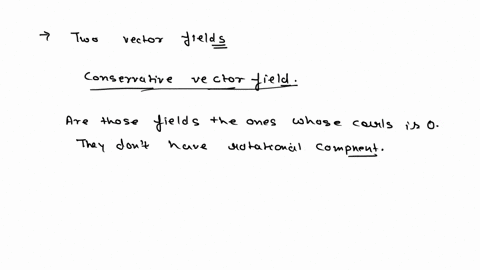 → Two vector fields
Conservative vector field.
Are those fields the ones whose curls is 0.
They don't have rotational compnent.